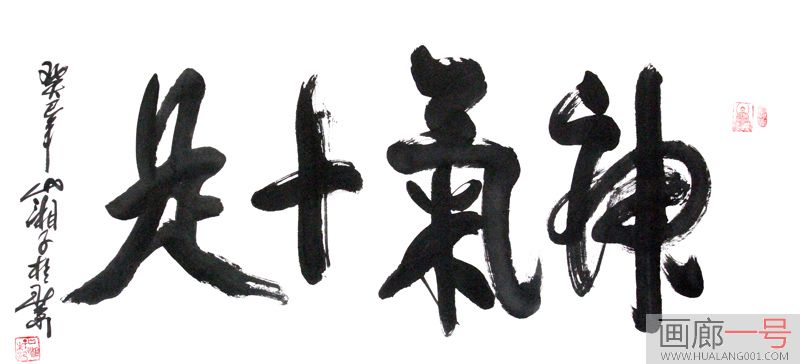 神氣十足
癸巳年湘子
画廊一号
WWW.HUALANG001.COM